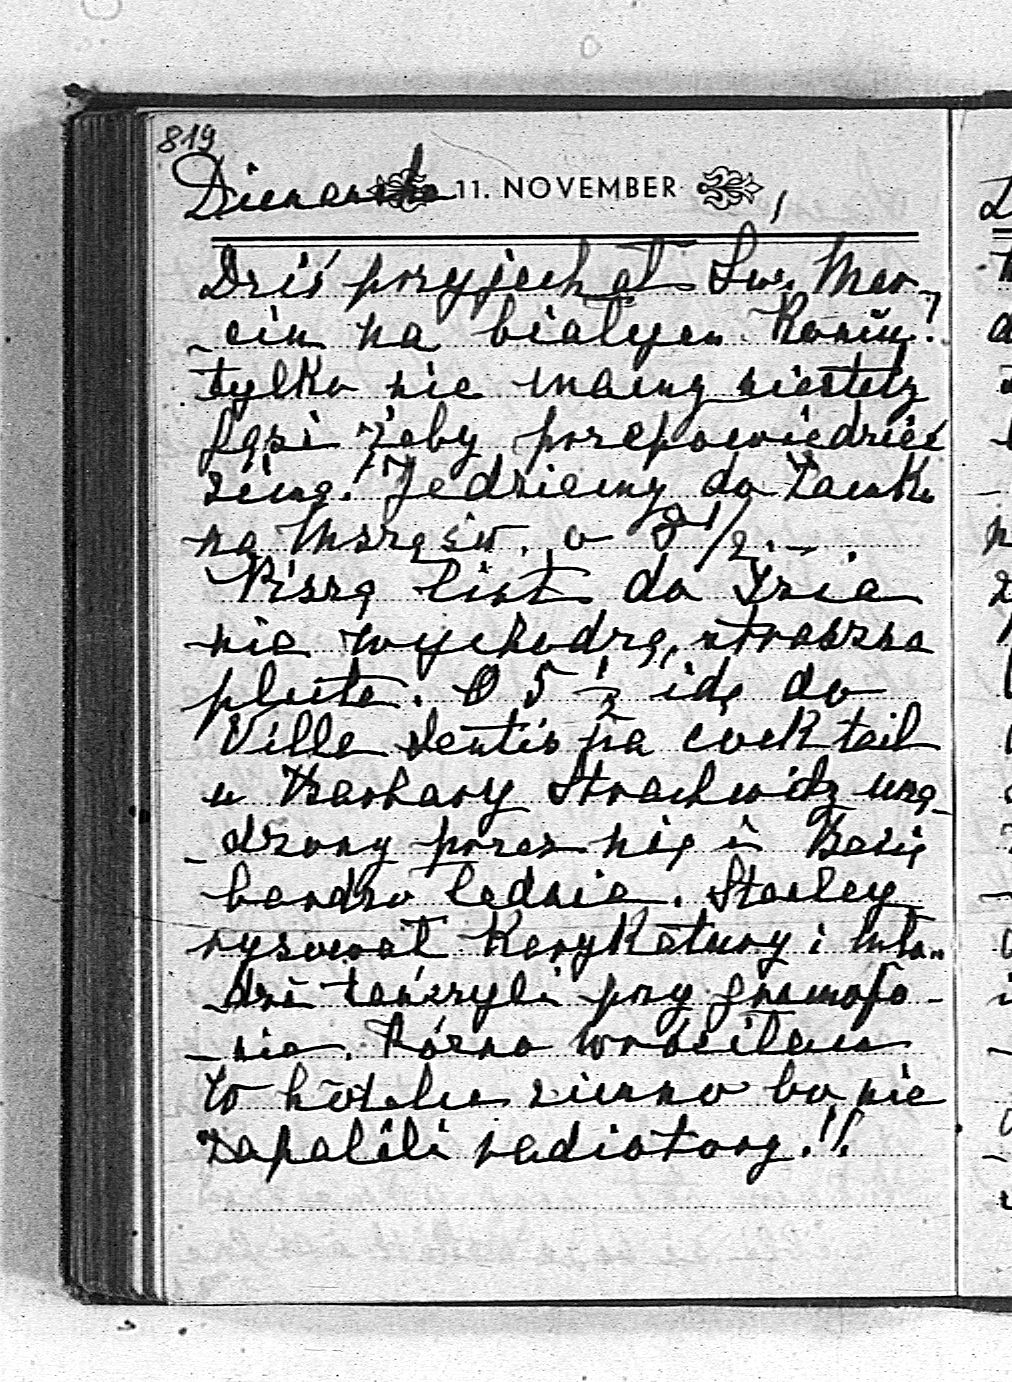 819
11. NOVEMBER
Dziś przyjechał Św. Mar-
-cin na białym Koniu!
tylko nie mamy niestety
gęsi żeby przepowiedzieć
zimę! Jedziemy do
na Mszę św. o 8 1/2. —.
Piszę list do Izia
nie wychodzę, straszna
pluta. O 5 1/2 idę do
Ville na cocktail
u Barbary Strachwitz urzą-
-dzony przez nią i Basię
bardzo ładnie. Stanley
rysował Karykatury i mło-
-dzi tańczyli przy gramofo-
-nie. Późno wróciłam
do hotelu zimno bo nie
zapalili radiatory!!